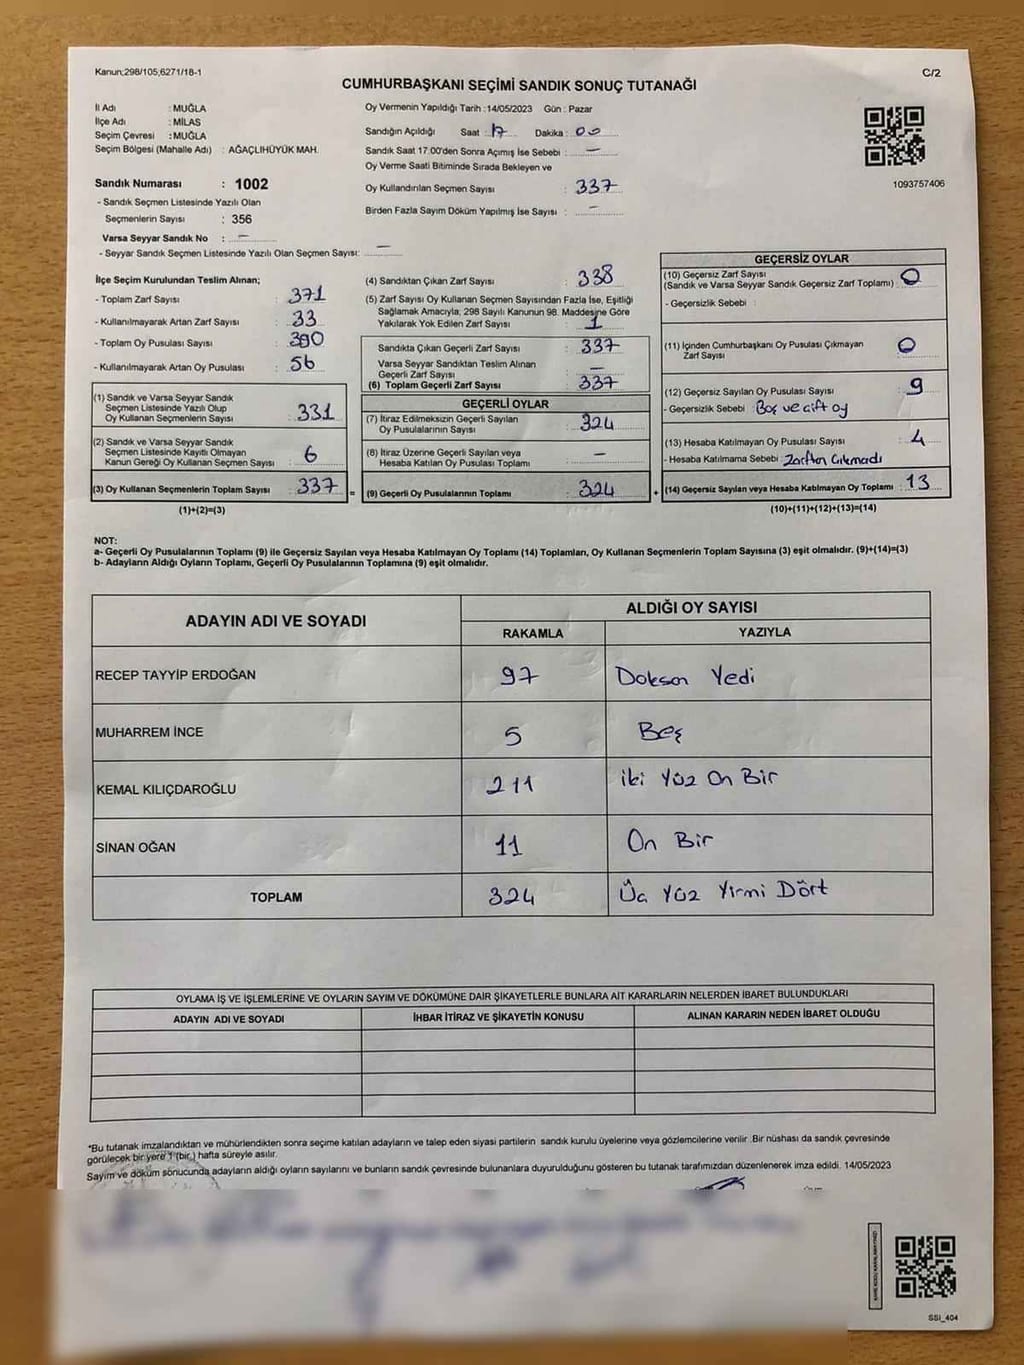 Kanun;298/105;6271/18-1
C/2
CUMHURBAŞKANI SEÇİMİ SANDIK SONUÇ TUTANAĞI
İl Adı : MUĞLA
İlçe Adı : MİLAS
Seçim Çevresi : MUĞLA
Seçim Bölgesi (Mahalle Adı) : AĞAÇLIHÜYÜK MAH.
Sandık Numarası : 1002
- Sandık Seçmen Listesinde Yazılı Olan
Seçmenlerin Sayısı : 356
Varsa Seyyar Sandık No : –
- Seyyar Sandık Seçmen Listesinde Yazılı Olan Seçmen Sayısı: –
Oy Vermenin Yapıldığı Tarih : 14/05/2023 Gün : Pazar
Sandığın Açıldığı Saat : 17 Dakika : 00
Sandık Saat 17:00'den Sonra Açımış İse Sebebi : –
Oy Verme Saati Bitiminde Sırada Bekleyen ve
Oy Kullandırılan Seçmen Sayısı : 337
Birden Fazla Sayım Döküm Yapılmış İse Sayısı : –
1093757406
İlçe Seçim Kurulundan Teslim Alınan;
- Toplam Zarf Sayısı : 371
- Kullanılmayarak Artan Zarf Sayısı : 33
- Toplam Oy Pusulası Sayısı : 390
- Kullanılmayarak Artan Oy Pusulası : 56
(1) Sandık ve Varsa Seyyar Sandık
Seçmen Listesinde Yazılı Olup
Oy Kullanan Seçmenlerin Sayısı : 331
(2) Sandık ve Varsa Seyyar Sandık
Seçmen Listesinde Kayıtlı Olmayan
Kanun Gereği Oy Kullanan Seçmen Sayısı : 6
(3) Oy Kullanan Seçmenlerin Toplam Sayısı : 337 =
(1)+(2)=(3)
(4) Sandıktan Çıkan Zarf Sayısı : 338
(5) Zarf Sayısı Oy Kullanan Seçmen Sayısından Fazla İse, Eşitliği
Sağlamak Amacıyla, 298 Sayılı Kanunun 98. Maddesine Göre
Yakılarak Yok Edilen Zarf Sayısı : 1
Sandıkta Çıkan Geçerli Zarf Sayısı : 337
Varsa Seyyar Sandıktan Teslim Alınan
Geçerli Zarf Sayısı : –
(6) Toplam Geçerli Zarf Sayısı : 337
GEÇERLİ OYLAR
(7) İtiraz Edilmeksizin Geçerli Sayılan
Oy Pusulalarının Sayısı : 324
(8) İtiraz Üzerine Geçerli Sayılan veya
Hesaba Katılan Oy Pusulası Toplamı : –
(9) Geçerli Oy Pusulalarının Toplamı : 324 +
GEÇERSİZ OYLAR
(10) Geçersiz Zarf Sayısı
(Sandık ve Varsa Seyyar Sandık Geçersiz Zarf Toplamı) : 0
- Geçersizlik Sebebi :
(11) İçinden Cumhurbaşkanı Oy Pusulası Çıkmayan
Zarf Sayısı : 0
(12) Geçersiz Sayılan Oy Pusulası Sayısı : 9
- Geçersizlik Sebebi : Boş ve çift oy
(13) Hesaba Katılmayan Oy Pusulası Sayısı : 4
- Hesaba Katılmama Sebebi : Zarftan Çıkmadı
(14) Geçersiz Sayılan veya Hesaba Katılmayan Oy Toplamı : 13
(10)+(11)+(12)+(13)=(14)
NOT:
a- Geçerli Oy Pusulalarının Toplamı (9) ile Geçersiz Sayılan veya Hesaba Katılmayan Oy Toplamı (14) Toplamları, Oy Kullanan Seçmenlerin Toplam Sayısına (3) eşit olmalıdır. (9)+(14)=(3)
b- Adayların Aldığı Oyların Toplamı, Geçerli Oy Pusulalarının Toplamına (9) eşit olmalıdır.
ADAYIN ADI VE SOYADI
ALDIĞI OY SAYISI
RAKAMLA YAZIYLA
RECEP TAYYİP ERDOĞAN 97 Doksan Yedi
MUHARREM İNCE 5 Beş
KEMAL KILIÇDAROĞLU 211 iki Yüz On Bir
SİNAN OĞAN 11 On Bir
TOPLAM 324 Üç Yüz Yirmi Dört
OYLAMA İŞ VE İŞLEMLERİNE VE OYLARIN SAYIM VE DÖKÜMÜNE DAİR ŞİKAYETLERLE BUNLARA AİT KARARLARIN NELERDEN İBARET BULUNDUKLARI
ADAYIN ADI VE SOYADI İHBAR İTİRAZ VE ŞİKAYETİN KONUSU ALINAN KARARIN NEDEN İBARET OLDUĞU
*Bu tutanak imzalandıktan ve mühürlendikten sonra seçime katılan adayların ve talep eden siyasi partilerin sandık kurulu üyelerine veya gözlemcilerine verilir .Bir nüshası da sandık çevresinde
görülecek bir yere 1 (bir) hafta süreyle asılır.
Sayım ve döküm sonucunda adayların aldığı oyların sayılarını ve bunların sandık çevresinde bulunanlara duyurulduğunu gösteren bu tutanak tarafımızdan düzenlenerek imza edildi. 14/05/2023
SSI_404